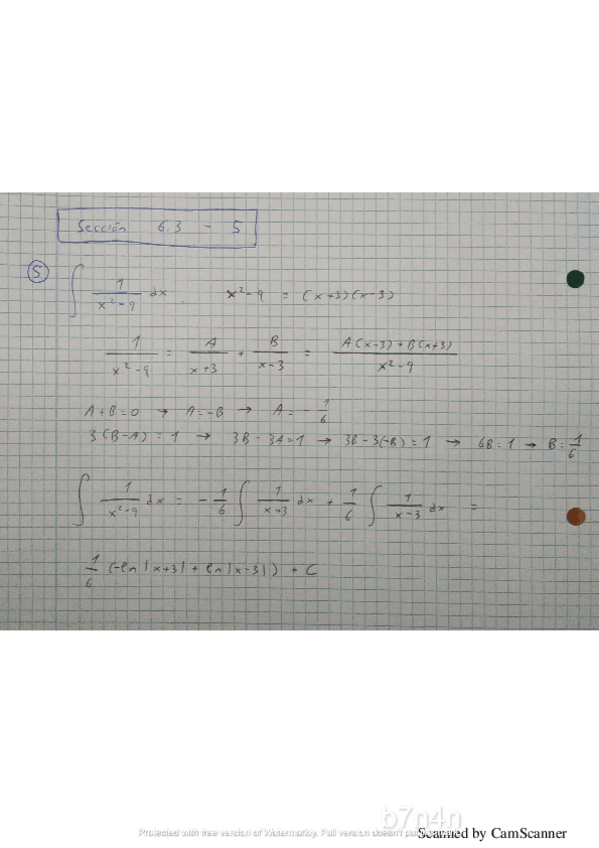 Sección 6.3 - 5
5 ∫ 1/(x²-9) dx . x²-9 = (x+3)(x-3)
1/(x²-9) = A/(x+3) + B/(x-3) = (A(x-3) + B(x+3))/(x²-9)
A+B=0 → A=-B → A = -1/6
3(B-A) = 1 → 3B-3A=1 → 3B-3(-B)=1 → 6B=1 → B=1/6
∫ 1/(x²-9) dx = -1/6 ∫ 1/(x+3) dx + 1/6 ∫ 1/(x-3) dx =
1/6 (-ln|x+3| + ln|x-3|) + C
b7n4n
Protected with free version of Watermarkly. Full version doesn't put
Scanned by CamScanner